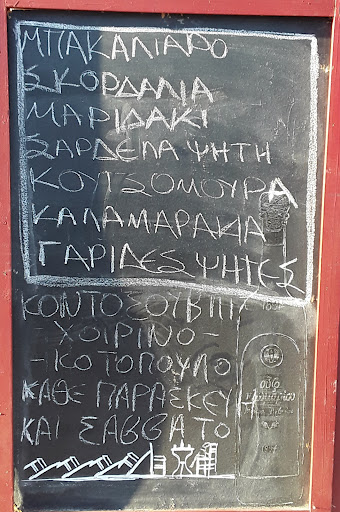 ΜΠΑΚΑΛΙΑΡΟ
ΣΚΟΡΔΑΛΙΑ
ΜΑΡΙΔΑΚΙ
ΣΑΡΔΕΛΑ ΨΗΤΗ
ΚΟΥΤΣΟΜΟΥΡΑ
ΚΑΛΑΜΑΡΑΚΙΑ
ΓΑΡΙΔΕΣ ΨΗΤΕΣ
ΚΟΝΤΟΣΟΥΒΛΙ
-ΧΟΙΡΙΝΟ-
-ΚΟΤΟΠΟΥΛΟ
ΚΑΘΕ ΠΑΡΑΣΚΕΥ
ΚΑΙ ΣΑΒΒΑΤΟ
ούζο